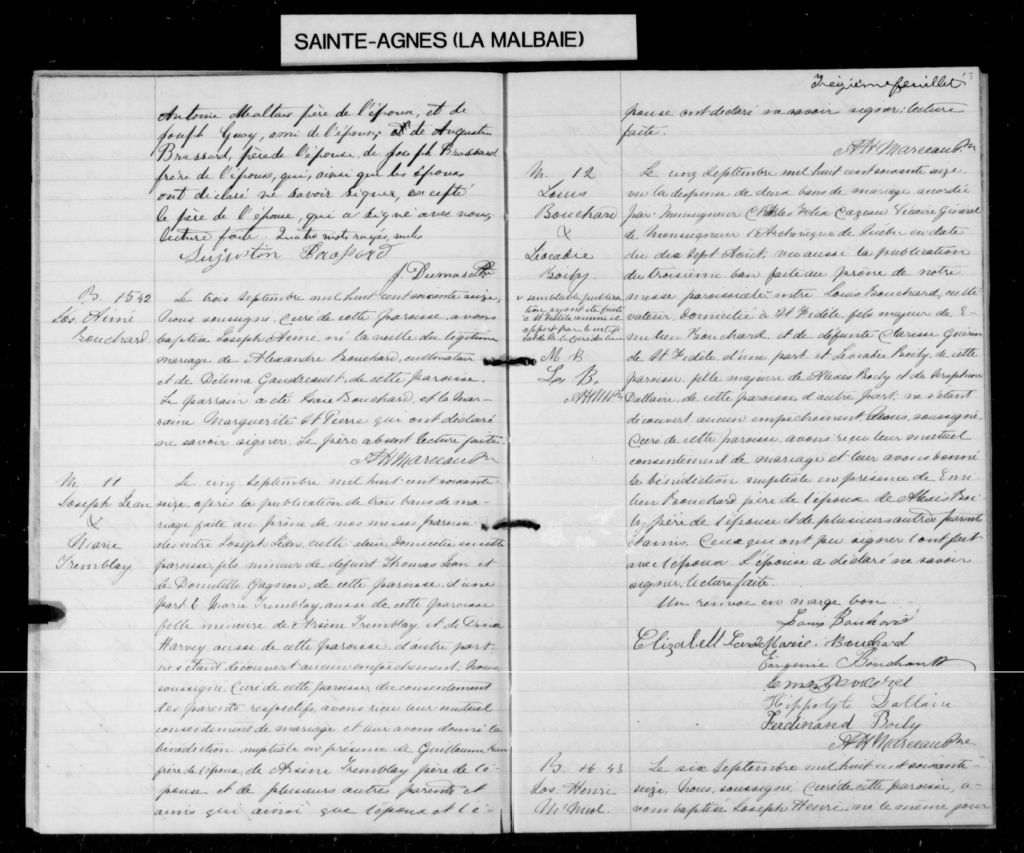 SAINTE-AGNES (LA MALBAIE)
Antoine Maltais père de l'époux, et de
Joseph Guay, ami de l'époux; et de Augustin
Brassard, père de l'épouse, de Joseph Brassard
frère de l'époux, qui, ainsi que les époux
ont déclaré ne savoir signer, excepté
le père de l'épouse, qui a signé avec nous
lecture faite. Quatre mots rayés, nuls
J. Dumas Ptre
B. 15 42
Jos. Aimé
Bouchard.
Le trois septembre mil huit cent soixante seize,
Nous soussigné, Curé de cette paroisse, avons
baptisé Joseph Aimé, né la veille du légitime
mariage de Alexandre Bouchard, cultivateur
et de Délima Gaudreault, de cette paroisse.
Le parrain a été Bouchard, et la mar-
raine Marguerite St Pierre qui ont déclaré
ne savoir signer. Le père absent lecture faite
A H Marceau Ptre
M. 11
Joseph Jean
&
Marie
Tremblay
Le cinq septembre mil huit cent soixante
seize, après la publication de trois bans de ma-
riage faite au prône de nos messes parois-
siales entre Joseph Jean, cultivateur, domicilié en cette
paroisse, fils mineur de défunt Thomas Jean et
de Domitille Gagnon, de cette paroisse, d'une
part & Marie Tremblay, aussi de cette paroisse
fille mineure de Arsène Tremblay et de
Harvey aussi de cette paroisse, d'autre part.
ne s'étant découvert aucun empêchement, Nous,
soussigné, Curé de cette paroisse, du consentement
des parents respectifs, avons reçu leur mutuel
consentement de mariage et leur avons donné la
bénédiction nuptiale en présence de Guillaume Jean
frère de l'époux, de Arsène Tremblay père de l'é-
pouse et de plusieurs autres parents et
amis qui ainsi que l'époux et l'é-
Treizième feuillet
13
pouse ont déclaré ne savoir signer: lecture
faite.
A H Marceau Ptre
M. 12
Louis
Bouchard
&
Léocadie
Boily
semblable publica
tion ayant été faite
à St Fidèle comme il
appert par le certifi
M. B
L. B.
A H M Ptre
Le cinq Septembre mil huit cent soixante seize,
vu la dispense de deux bans de mariage accordée
par Monseigneur Charles Félix Cazeau Vicaire Général
de Monseigneur l'Archevêque de Québec en date
du dix sept Août; vu aussi la publication
du troisième ban faite au prône de notre
messe paroissiale entre Louis Bouchard, culti-
vateur, domicilié à St Fidèle fils majeur de E-
mélien Bouchard et de défunte Clarisse Guérin
de St Fidèle, d'une part et Léocadie Boily, de cette
paroisse, fille majeure de Alexis Boily et de Séraphine
Dallaire, de cette paroisse d'autre part; ne s'étant
découvert aucun empêchement Nous, soussigné,
Curé de cette paroisse, avons reçu leur mutuel
consentement de mariage et leur avons donné
la bénédiction nuptiale en présence de Emé-
lien Bouchard, père de l'époux de Alexis Boi-
ly, père de l'épouse et de plusieurs autres parents
et amis. Ceux qui ont pu signer l'ont fait
avec l'époux. L'épouse a déclaré ne savoir
signer, lecture faite.
Un renvoi en marge bon.
Louis Bouchard
Elizabeth Marie Bouchard
Eugénie Bouchard
Hippolyte Dallaire
Ferdinand Boily
A H Marceau Ptre
B. 16 43
Jos. Henri
Le six septembre mil huit cent soixante-
seize, Nous, soussigné Curé de cette paroisse, a-
vons baptisé Joseph Henri, né le même jour